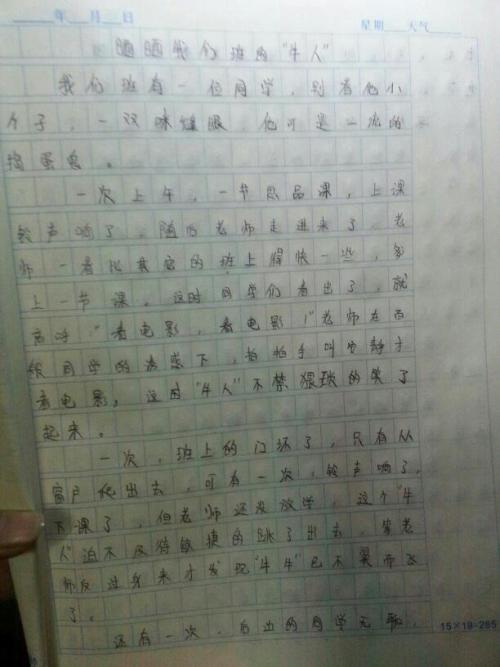 年 月 日 星期 天气
晒晒我们班的“牛人”
我们班有一位同学，别看他小
个子，一双眯缝眼，他可是一流的
捣蛋鬼。
一次上午，一节思品课，上课
铃声响了，随后老师走进来了，老
师一看比其它的班上得快一些，多
上一节课。这时同学们看出了，就
高呼：“看电影，看电影！”老师在百
般同学的诱惑下，拍拍手叫安静才
看电影，这时“牛人”不禁猥琐的笑了
起来。
一次，班上的门坏了，只有从
窗户爬出去，可有一次，铃声响了，
下课了，但老师还没放学，这个“牛
人”迫不及待敏捷的跳了出去，等老
师反过身来才发现“牛牛”已不翼而飞
了。
还有一次，后边的同学无聊，
15×19=285